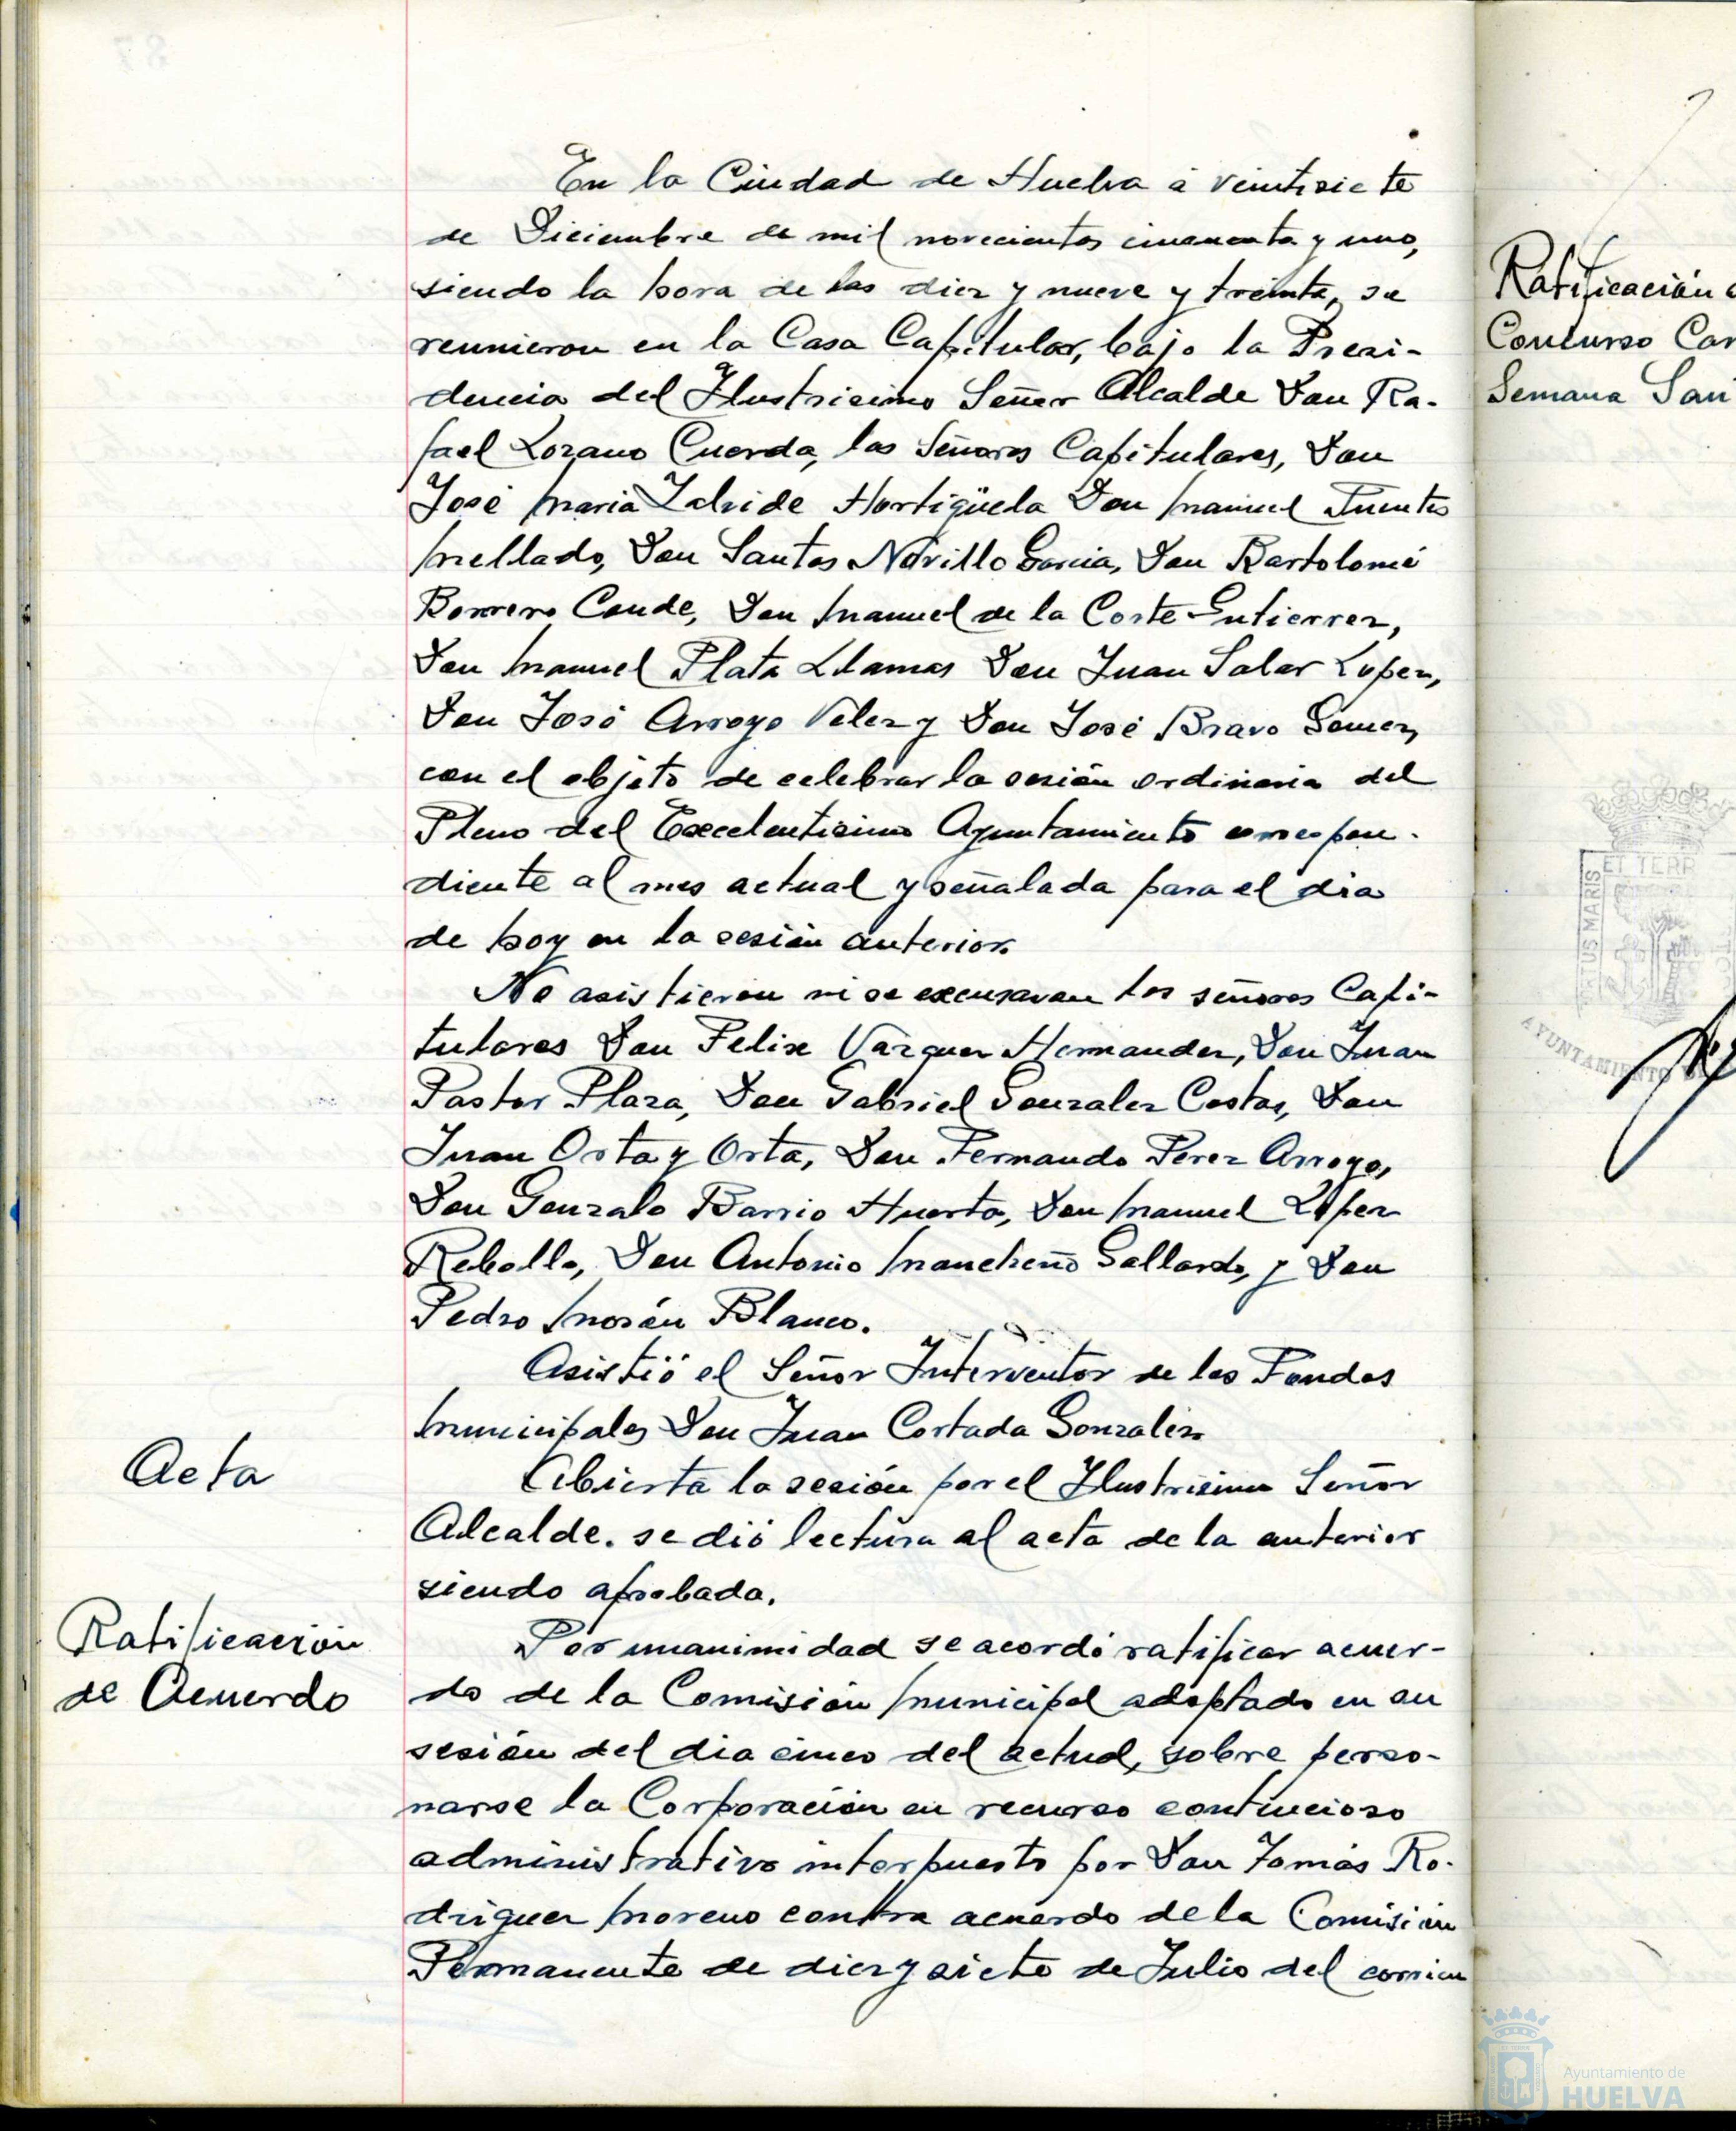 En la Ciudad de Huelva á veintisiete
de Diciembre de mil novecientos cincuenta y uno,
siendo la hora de las diez y nueve y treinta, se
reunieron en la Casa Capitular, bajo la Presi-
dencia del Ilustrisimo Señor Alcalde Don Ra-
fael Lozano Cuerda, los Señores Capitulares, Don
José Maria Zalvide Hortigüela Don Manuel Fuentes
Mellado, Don Santos Novillo Garcia, Don Bartolomé
Borrero Conde, Don Manuel de la Corte Gutierrez,
Don Manuel Plata Llamas Don Juan Salar Lopez,
Don José Arroyo Velez y Don José Bravo Gomez,
con el objeto de celebrar la sesión ordinaria del
Pleno del Excelentisimo Ayuntamiento correspon-
diente al mes actual y señalada para el dia
de hoy en la sesión anterior.
No asistieron ni se excusaron los señores Capi-
tulares Don Felix Vazquez Hernandez, Don Juan
Pastor Plaza, Don Gabriel Gonzalez Costas, Don
Juan Orta y Orta, Don Fernando Perez Arroyo,
Don Gonzalo Barrio Huerta, Don Manuel López
Rebollo, Don Antonio Mancheño Gallardo, y Don
Pedro Morón Blanco.
Asistió el Señor Interventor de los Fondos
Municipales Don Juan Cortada Gonzalez.
Acta
Abierta la sesión por el Ilustrisimo Señor
Alcalde. se dió lectura al acta de la anterior
siendo aprobada.
Ratificación
de Acuerdo
Por unanimidad se acordó ratificar acuer-
do de la Comisión Municipal adoptado en su
sesión del dia cinco del actual, sobre perso-
narse la Corporación en recurso contencioso
administrativo interpuesto por Don Tomás Ro-
driguez Moreno contra acuerdo de la Comisión
Permanente de diez y siete de Julio del corrien
Ratificación
Concurso
Semana San
ET TERR
AYUNTAMIENTO
Ayuntamiento de
HUELVA